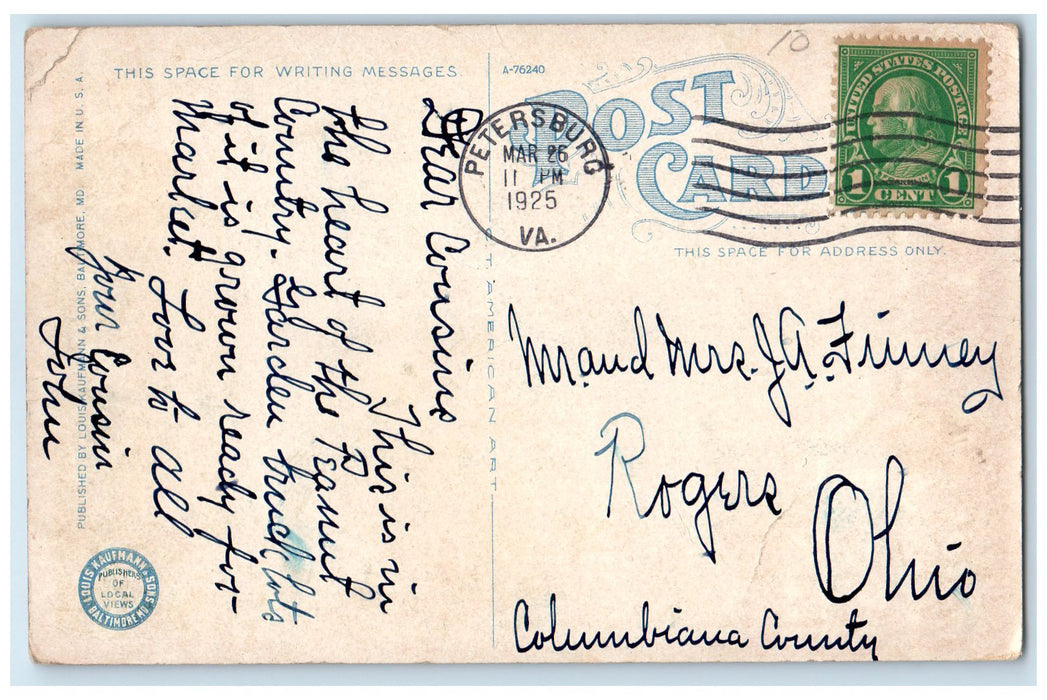 THIS SPACE FOR WRITING MESSAGES.
A-76240
POST
CARD
10
UNITED STATES POSTAGE
1 1
CENT
PETERSBURG
MAR 26
11 PM
1925
VA.
THIS SPACE FOR ADDRESS ONLY.
Dear Cousins
This is in
the heart of the Peanut
Country. Garden truck lots
of it is grown ready for
Market. Love to all
Your Cousin
John
Mr and Mrs. J. A. Finney
Rogers
Ohio
Columbiana County
AMERICAN ART
PUBLISHED BY LOUIS KAUFMANN & SONS, BALTIMORE, MD. MADE IN U. S. A.
LOUIS KAUFMANN & SONS
BALTIMORE MD
PUBLISHERS
OF
LOCAL
VIEWS